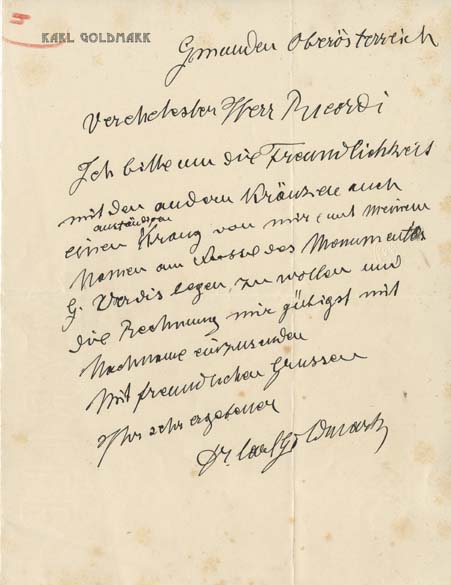 KARL GOLDMARK
Gmunden Oberösterreich
Verehrtester Herr Ricordi
Ich bitte um die Freundlichkeit
mit den andern Kränzen auch
anständigen
einen Kranz von mir (mit meinem
Namen am Sockel des Monumentes
G. Verdis legen, zu wollen und
die Rechnung mir gütigst mit
Nachname einzusenden
Mit freundlichen Grüssen
Ihr sehr ergebener
Dr. Carl Goldmark